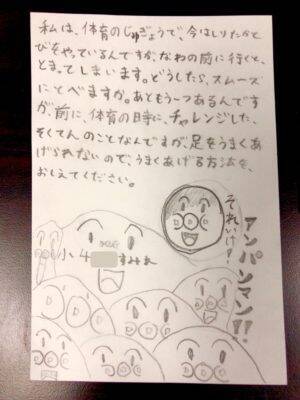 私は、体育のじゅぎょうで、今はしりたかと
びをやっているんですが、なわの前に行くと、
とまってしまいます。どうしたら、スムーズ
にとべますか。あともう一つあるんです
が、前に、体育の時に、チャレンジした、
そくてんのことなんですが、足をうまくあ
げられないので、うまくあげる方法を、
おしえてください。
それいけ!
アンパンマン!!
小4
すみれ